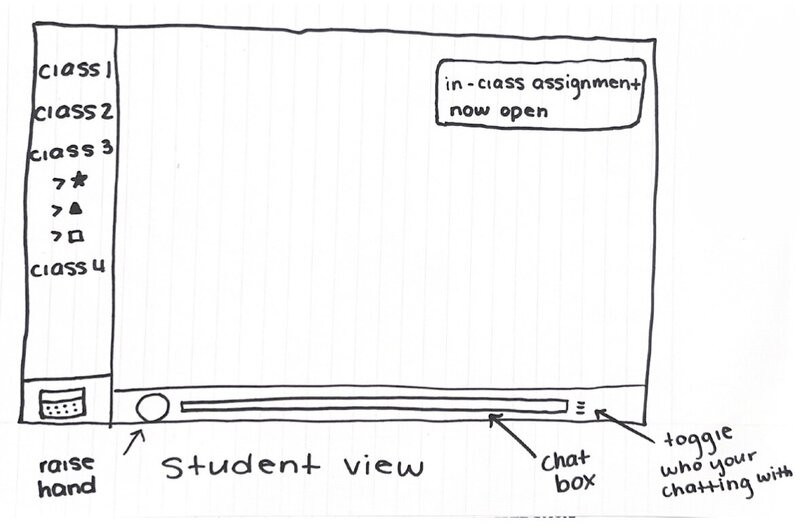 class 1
class 2
class 3
class 4
in-class assignment
now open
raise
hand
student view
chat
box
toggle
who your
chatting with